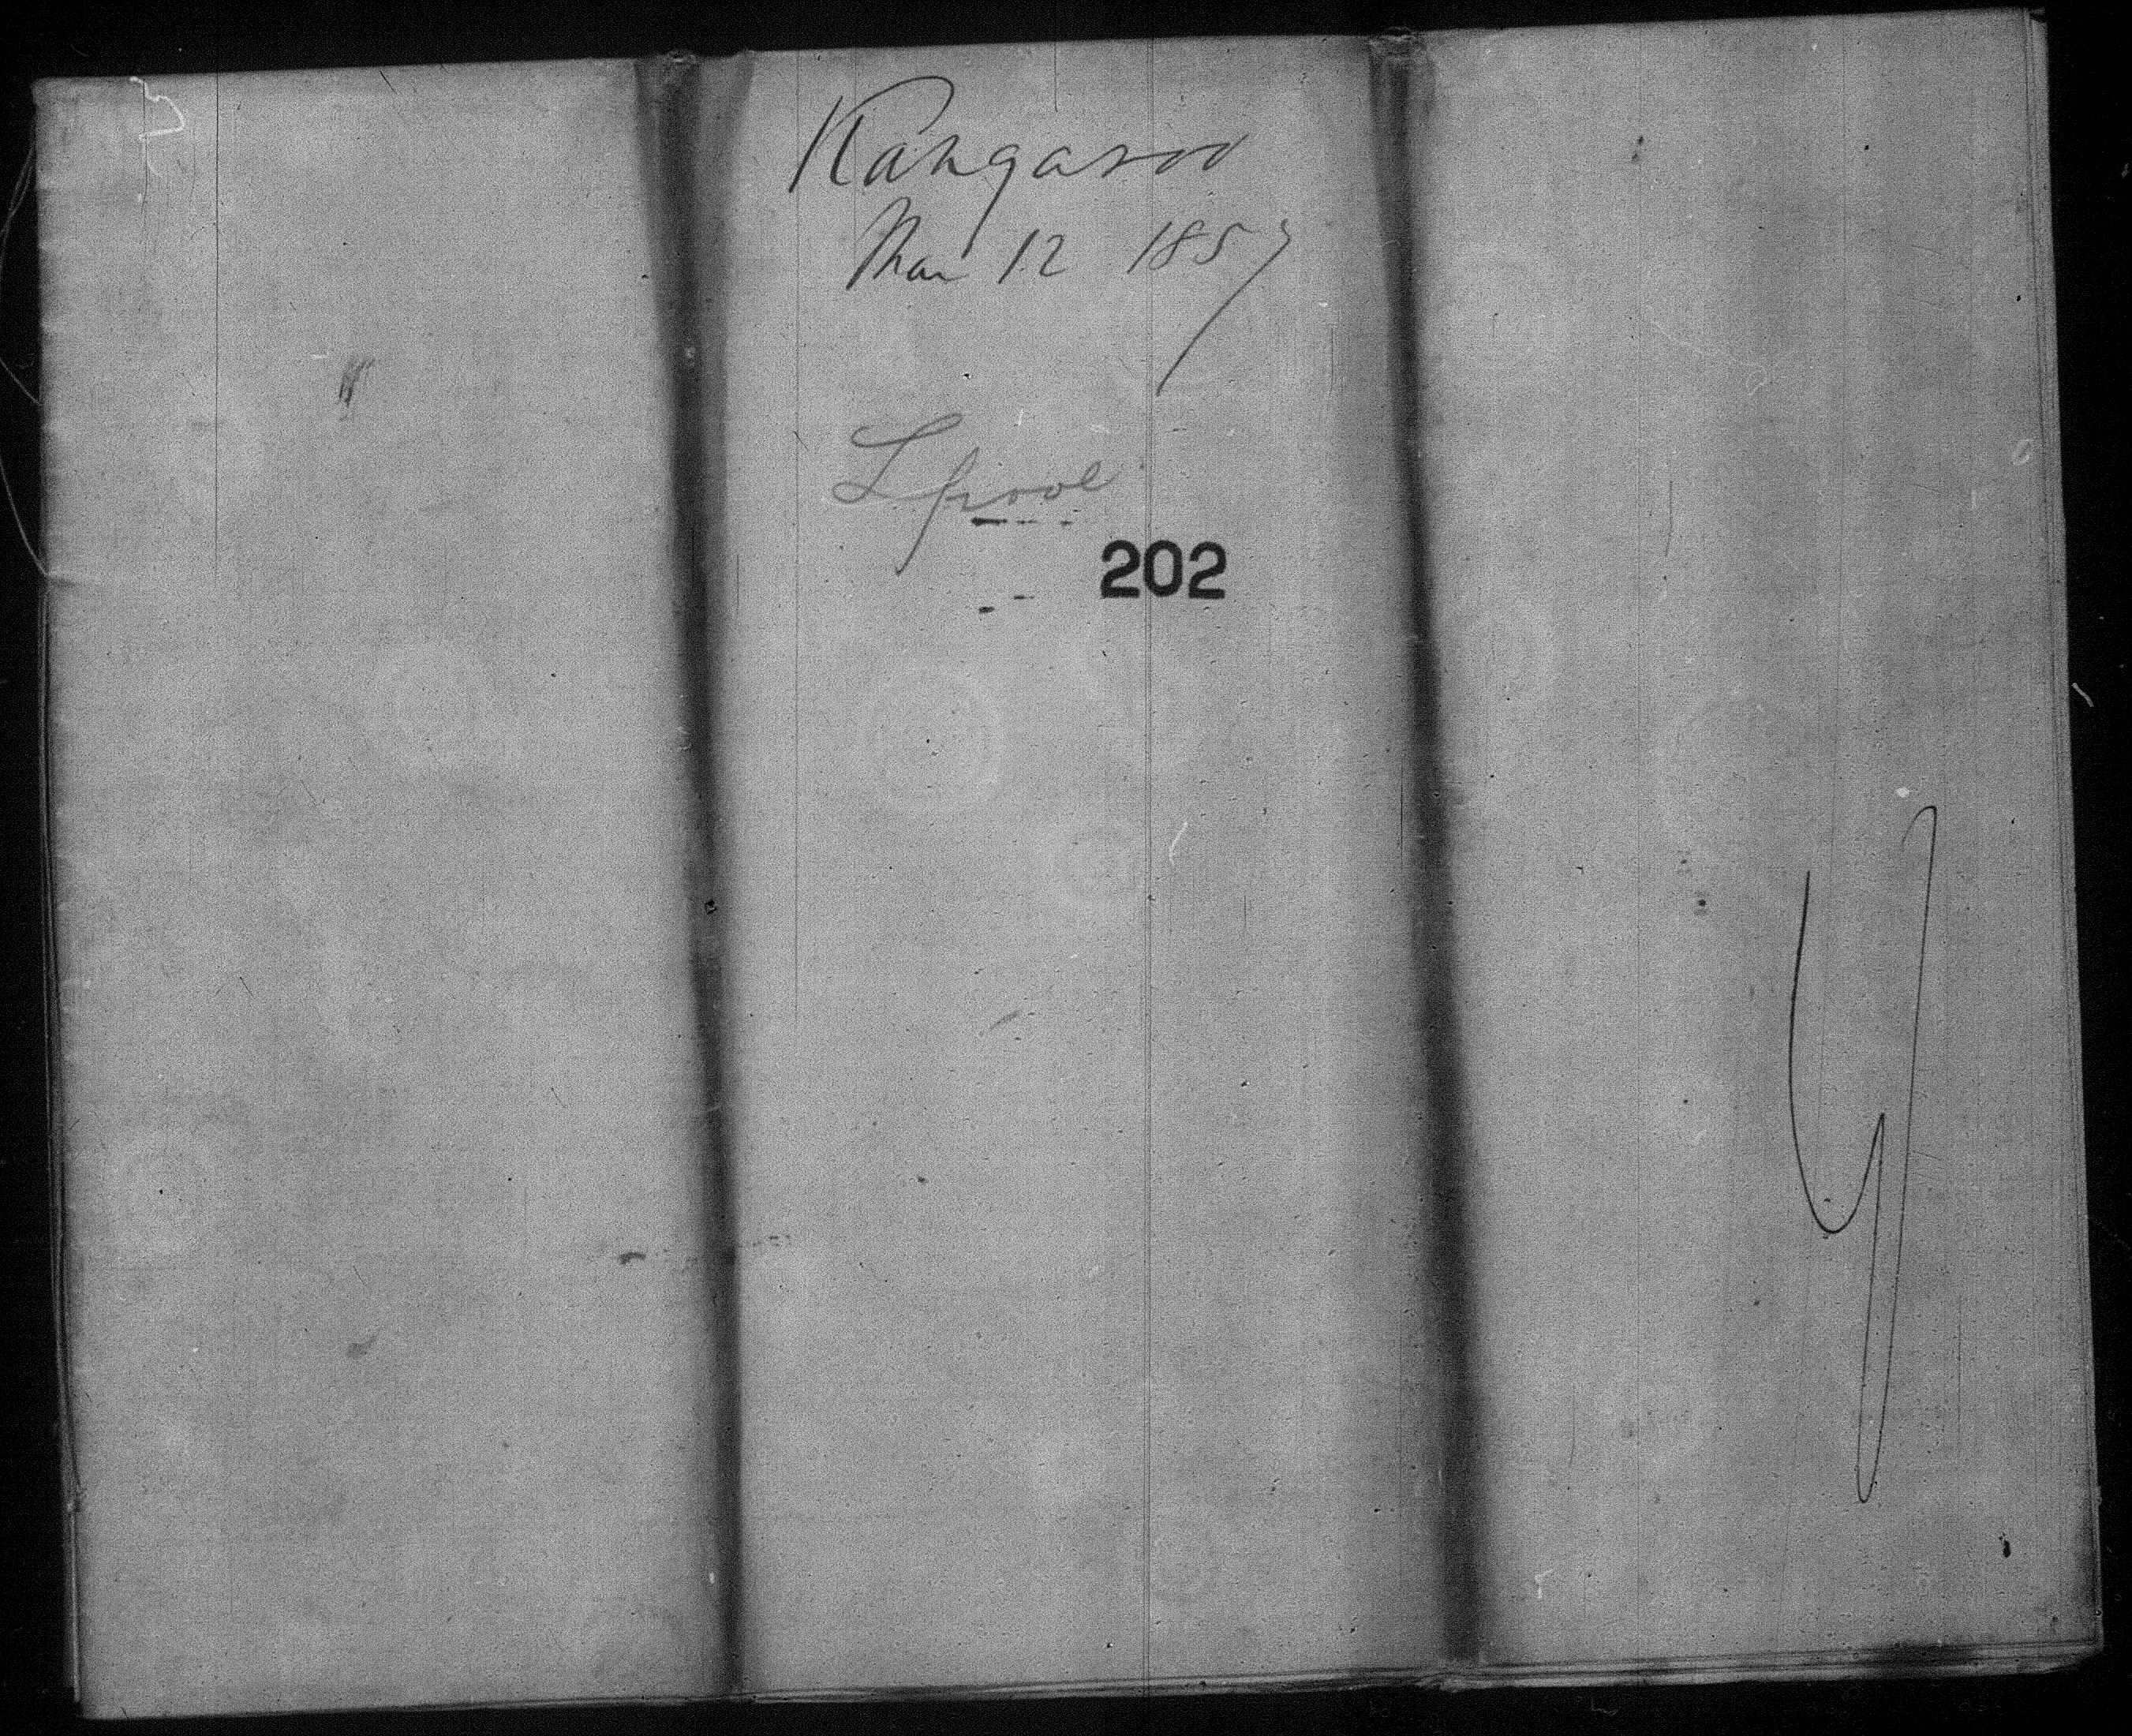 Kangaroo
Mar 12 1857
Lpool
202